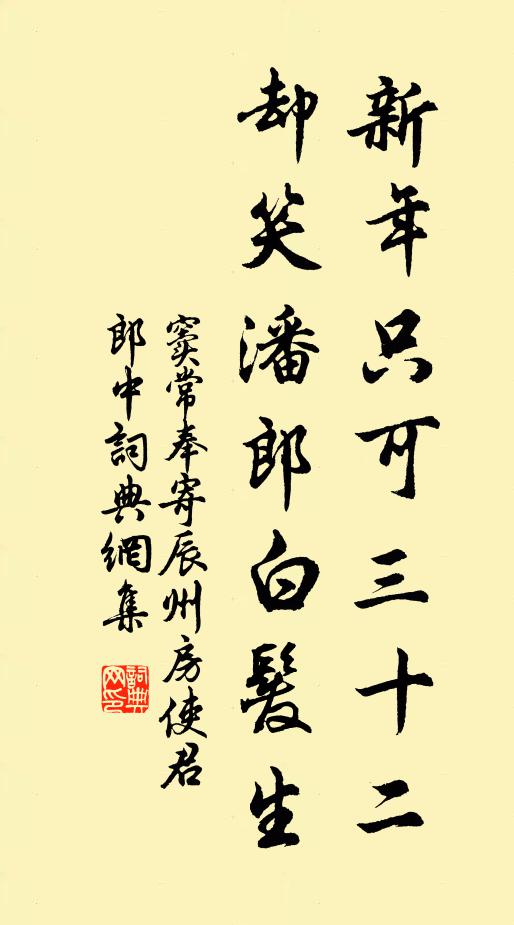 新年只可三十二
却笑潘郎白髮生
竇常奉寄辰州房使君
郎中詞典網集
詞典
网印